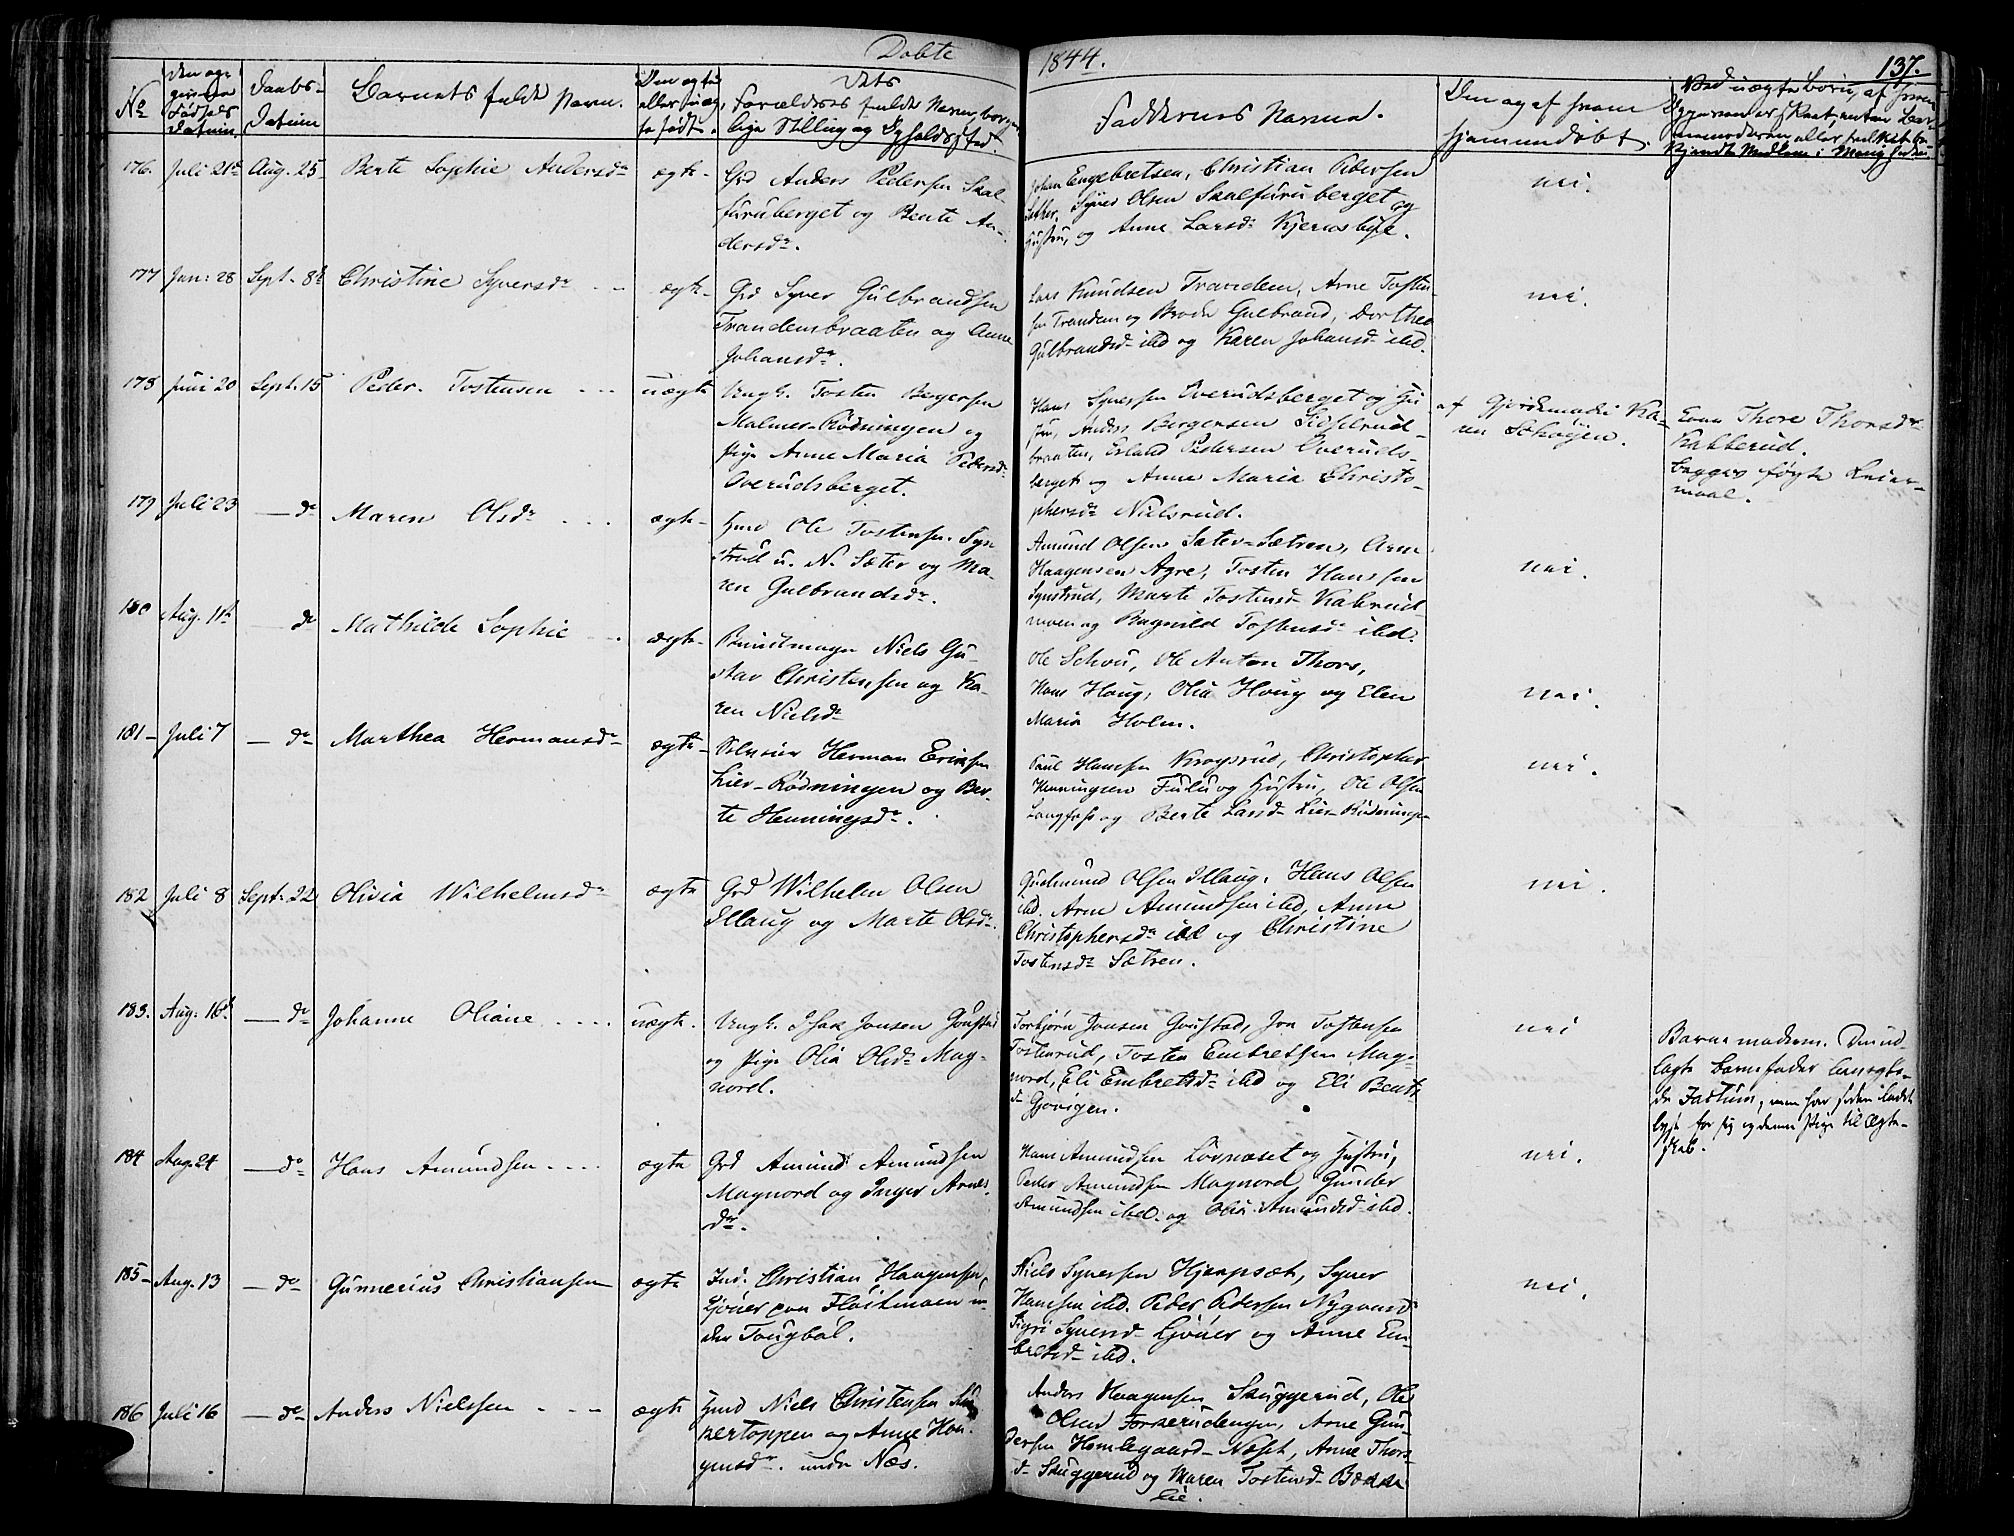 Døbte 1844. 137.
No
Den op-
given
Fødsels
Datum.
Daabs-
Datum
Barnets fulde Navn.
Om ægte
eller uæg-
te født.
Dets
Forældres fulde Navn, borger-
lige Stilling og Opholdssted.
Faddernes Navne.
Om og af hvem
hjemmedøbt.
Ved uægte Børn, af hvem
176. Juli 21de Aug. 25 Berte Sophie Andersdr ægte-
Grd Anders Pedersen Skal-
furuberget og Berte An-
dersdr.
Johan Engebretsen, Christian Pedersen
Syver Olsen Skalfuruberget og
Hustru, og Anne Larsdr Kjernsbye.
nei.
177 Jun: 28 Sept. 8de Christine Syversdr - - ægte-
Grd Syver Gulbrandsen
Trandemsbraaten og Anne
Johansdr.
Lars Knudsen Trandem, Arne Tosten-
sen Trandem og Broder Gulbrand, Dorthea
Gulbrandsd ibd og Karen Johansd ibd.
nei.
178 Juni 20 Sept. 15 Peder Tostensen - - - uægte
Ungk. Tosten Bergersen
Malmer-Rødningen og
Pige Anne Maria Pedersdr
Overudsberget.
Hans Syversen Overudsberget og Hu-
stru, Anders Bergersen Sidselrud-
braaten, Erland Pedersen Overuds-
berget og Anne Maria Christo-
phersdr Nielsrud.
af Gjordemoder Ka-
ren Schøyen.
Enke Thore Thorsdr
Kabberud.
begges første Leier-
maal.
179 Juli 23 - do Maren Olsdr - - - ægte-
Huud Ole Tostensen Syn-
strud u. N. Sæter og Ma-
ren Gulbrandsdr.
Amund Olsen Sæter-Sætren, Arne
Haagensen Agre, Tosten Hansen
Synstrud, Marte Tostensd Kabrud-
moen og Ragnild Tostensdr ibd.
nei.
180 Aug. 11te - do Mathilde Sophie - - . ægte-
Buntmager Niels Gu-
stav Christensen og Ka-
ren Nielsdr
Ole Schou, Ole Anton Thors,
Hans Houg, Olia Houg og Elen
Maria Holm.
nei.
181- Juli 7 - do Marthea Hermansdr ægte-
Selveier Herman Eriksen
Lier-Rødningen og Ber-
te Henningsdr.
Paul Hansen Krogsrud, Christopher
Henningsen Fulu og Hustru, Ole Olsen
Langfoss og Berte Larsd Lier-Rødningen
nei.
182 Juli 8 Sept. 22 Olivia Wilhelmsdr ægte
Grd Wilhelm Olsen
Illaug og Marte Olsdr.
Gudmund Olsen Illaug, Hans Olsen
ibd. Arne Amundsen ibd, Anne
Christophersdr ibd og Christine
Tostensdr Sætren.
nei.
183. Aug. 16de - do Johanne Oliane - - - - uægte.
Ungk. Isak Jonsen Goustad
og Pige Olia Olsdr Mag-
nord.
Torbjørn Jonsen Goustad, Jon Tostensen
Tostenrud, Tosten Embretsen Mag-
nord, Eli Embretsdr ibd og Eli Bents-
d Gjøvigen.
nei
Barnemoderen. Den ud-
lagte Barnefader benægte-
de Factum, men har siden ladet
lyse for sig og denne Pige til Ægte-
skab.
184 Aug. 24 - do Hans Amundsen - - - - ægte
Grd Amund Amundsen
Magnord og Inger Arnes-
dr.
Hans Amundsen Løvnæset og Hustru,
Peder Amundsen Magnord, Gunder
Amundsen ibd. og Olia Amundsd ibd.
nei.
185- Aug. 13 - do Gunnerius Christiansen ægte
Ind. Christian Haagensen,
Gjøuer paa Fløitmoen un-
der Tougbøl.
Niels Syversen Hjenpsæt, Syver
Hansen ibd. Peder Pedersen Nygaard
Sigri Syversd Gjøuer og Anne Em-
bretsd ibd.
nei.
186 Juli 16 - do Anders Nielsen - - - ægte
Huud Niels Christensen
pertoppen og Anne Haa-
gensdr. under Næs.
Anders Haagensen Skuggerud, Ole
Olsen Forkerudengen, Arne Gun-
dersen Homlegaard-Næset, Anne Thors-
d Skuggerud og Maren Tostensd Bække-
lie.